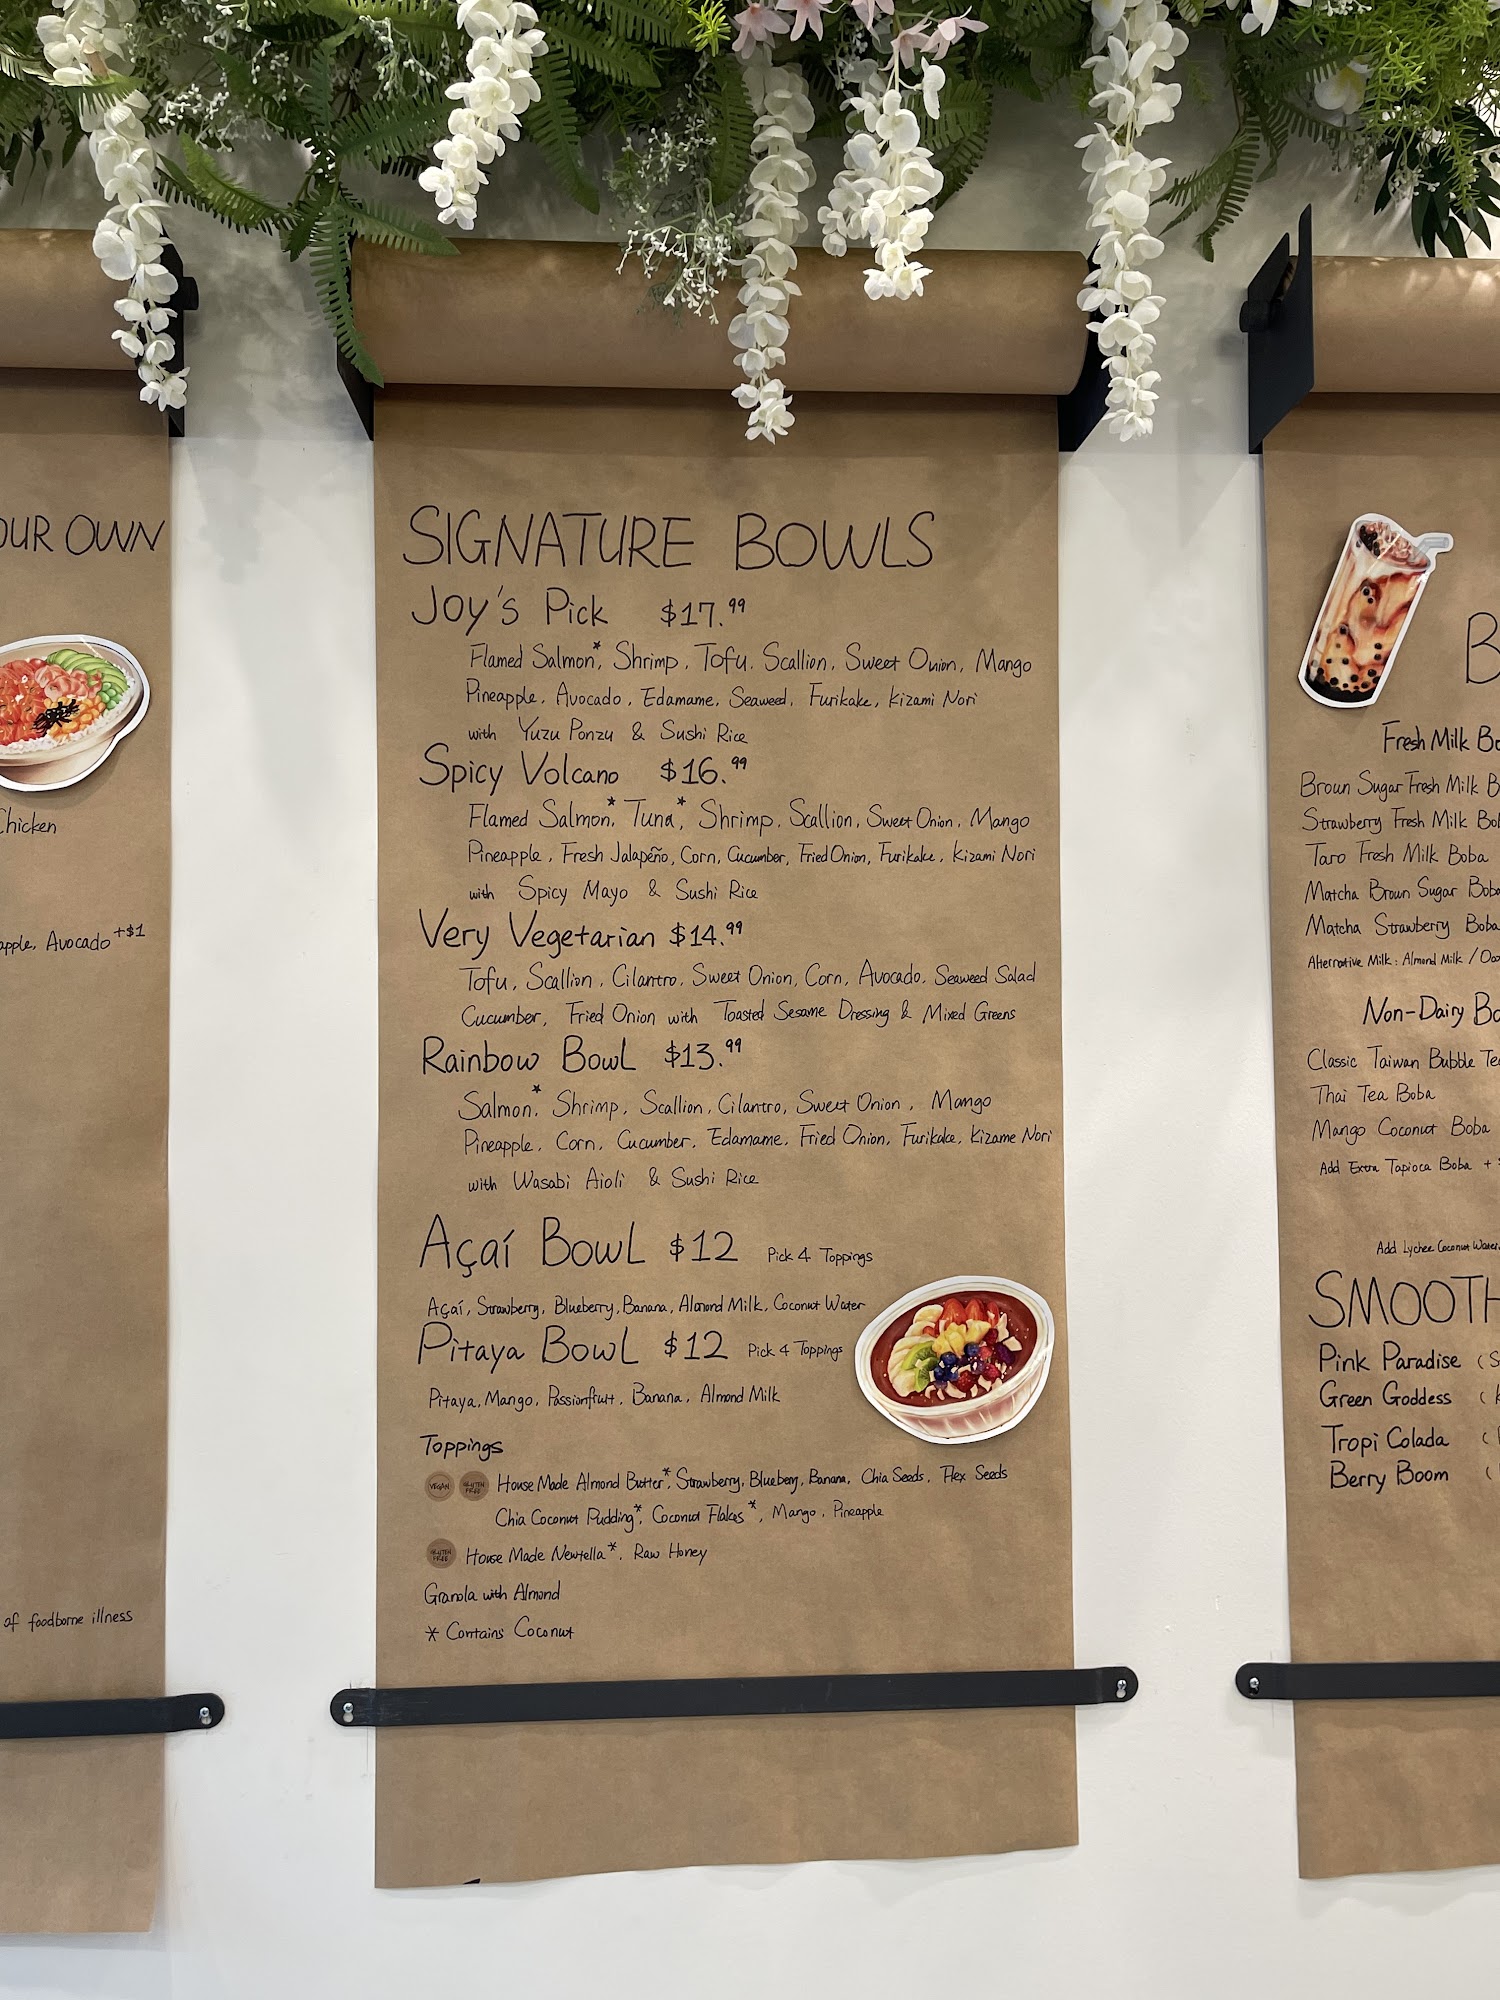 OUR OWN
Chicken
apple, Avocado +$1
of foodborne illness
SIGNATURE BOWLS
Joy's Pick $17.99
Flamed Salmon*, Shrimp, Tofu, Scallion, Sweet Onion, Mango
Pineapple, Avocado, Edamame, Seaweed, Furikake, Kizami Nori
with Yuzu Ponzu & Sushi Rice
Spicy Volcano $16.99
Flamed Salmon*, Tuna*, Shrimp, Scallion, Sweet Onion, Mango
Pineapple, Fresh Jalapeño, Corn, Cucumber, Fried Onion, Furikake, Kizami Nori
with Spicy Mayo & Sushi Rice
Very Vegetarian $14.99
Tofu, Scallion, Cilantro, Sweet Onion, Corn, Avocado, Seaweed Salad
Cucumber, Fried Onion with Toasted Sesame Dressing & Mixed Greens
Rainbow Bowl $13.99
Salmon*, Shrimp, Scallion, Cilantro, Sweet Onion, Mango
Pineapple, Corn, Cucumber, Edamame, Fried Onion, Furikake, Kizame Nori
with Wasabi Aioli & Sushi Rice
Açaí Bowl $12 Pick 4 Toppings
Açaí, Strawberry, Blueberry, Banana, Almond Milk, Coconut Water
Pitaya Bowl $12 Pick 4 Toppings
Pitaya, Mango, Passionfruit, Banana, Almond Milk
Toppings
VEGAN GLUTEN FREE House Made Almond Butter*, Strawberry, Blueberry, Banana, Chia Seeds, Flex Seeds
Chia Coconut Pudding*, Coconut Flakes*, Mango, Pineapple
GLUTEN FREE House Made Newtella*, Raw Honey
Granola with Almond
* Contains Coconut
B
Fresh Milk Bo
Broun Sugar Fresh Milk B
Strawberry Fresh Milk Bob
Taro Fresh Milk Boba
Matcha Broun Sugar Boba
Matcha Strawberry Boba
Alternative Milk: Almond Milk / Oa
Non-Dairy Bo
Classic Taiwan Bubble Tea
Thai Tea Boba
Mango Coconut Boba
Add Extra Tapioca Boba +
Add Lychee Coconut Water
SMOOTH
Pink Paradise (S
Green Goddess (
Tropi Colada (
Berry Boom (